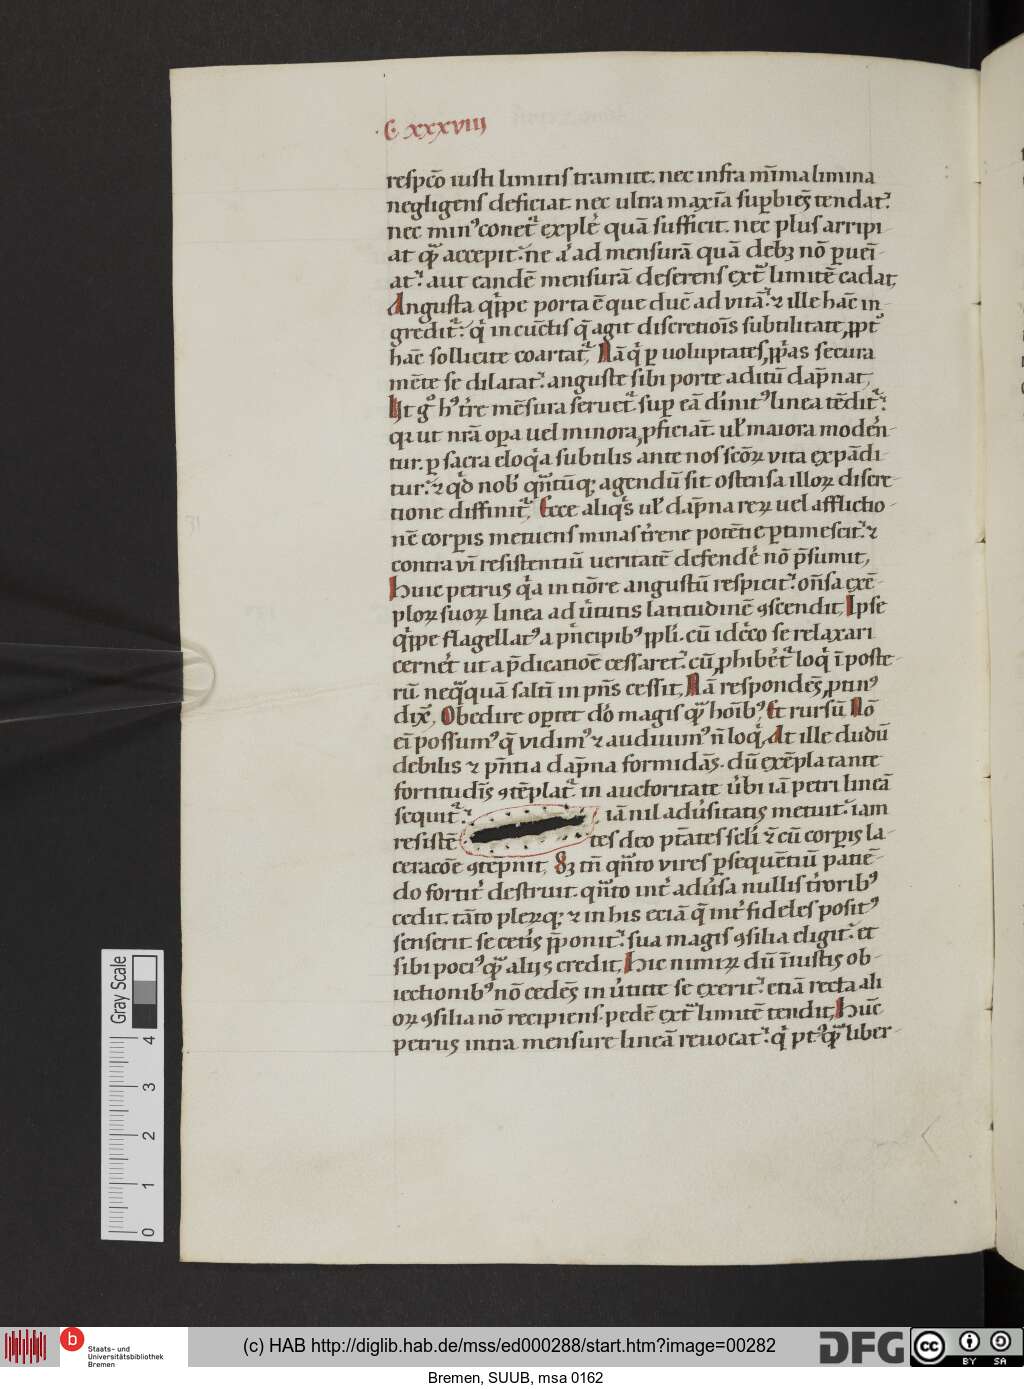 C xxxviii
respc̄o iusti limitis tramite. nec infra mī̄ma limina
negligens deficiat. nec ultra maxīa suꝑbiēs tendat.
nec min⁹ conet᷑ explē quā sufficit. nec plus arripi-
at qͣ accepit. ne a ad mensurā quā debꝫ nō ꝑuēi-
at. aut eandē mensurā deserens ext᷑ limitē cadat,
Angusta qͥppe porta ē que duc̄ ad vitā. ⁊ ille hāc in-
gredit᷑. qͥ in cūctis q̄ agit discretiōis subtilitate ꝓpt᷑
hāc sollicite coartat᷑, Nā qͥ ꝑ uoluptates ꝓpͥas secura
mēte se dilatat. anguste sibi porte aditū dāp̄nat,
Ut gͦ h⁹ t̄re mēsura seruet᷑. suꝑ eā dīnit⁹ linea tēdit᷑.
qꝛ ut nr̄ā oꝑa uel minora ꝓficiāt. ul̕ maiora modēn-
tur. ꝑ sacra eloqͥa subtilis ante nos sc̄oꝝ vita expādi-
tur. ⁊ qͥd nob̕ qn̄tūqꝫ agendū sit ostensa illoꝝ discre-
tione diffinit᷑, Ecce aliqͥs ul̕ dāp̄na reꝝ uel afflictio-
nē corꝑis metuens minas t̄rene potētie ꝑtimescit. ⁊
contra vī resistentiū ueritatē defendē nō p̄sumit,
Huic petrus qͥa in tiōre angustū respicit. oñsa exē-
ploꝝ suoꝝ linea ad v̄tutis latitudinē ꝯscendit, Ipse
qͥppe flagellat⁹ a pͥncipib⁹ ꝓpli. cū idc̄co se relaxari
cerneret ut a p̄dicatiōe cessaret. cū ꝓhibēt᷑ loqͥ ī poste-
rū. neqͣquā saltī in pn̄s cessit, Nā respondēs ꝓtin⁹
dix̄, Obedire oꝑtet dō magis qͣ hoīb⁹, Et rursū Nō
ēī possum⁹ q̄ vidim⁹ ⁊ audiuim⁹ n̄ loqͥ, At ille dudū
debilis ⁊ pn̄tia dāp̄na formidās. dū exēpla tante
fortitudīs ꝯtēplat᷑. in auctoritate v̄bi iā petri lineā
sequit᷑. iā nil adūsitatis metuit. iam
resistē tes deo ptātes seli᷑ ⁊ cū corꝑis la-
ceracōe ꝯtēpnit, Sꝫ tn̄ qn̄to vires ꝑsequētiū patiē-
do fortit᷑ destruit. qn̄to int᷑ adūsa nullis t̄rorib⁹
cedit. tāto pleꝝqꝫ ⁊ in his eciā q̄ int᷑ fideles posit⁹
senserit. se cetīs p̄ponit. sua magis ꝯsilia eligit. et
sibi poci⁹ qͣ alijs credit, Hic nimiꝝ dū īiustis ob-
iectionib⁹ nō cedēs in v̄titte se exerit. etiā recta ali
oꝝ ꝯsilia nō recipiens. pedē ext᷑ limitē tendit, Hūc
petrus intra mensure lineā reuocat. qͥ pt⁹qͣ liber-
Gray Scale
4
3
2
1
0
b
Staats- und
Universitätsbibliothek
Bremen
(c) HAB http://diglib.hab.de/mss/ed000288/start.htm?image=00282
DFG
cc
BY SA
Bremen, SUUB, msa 0162